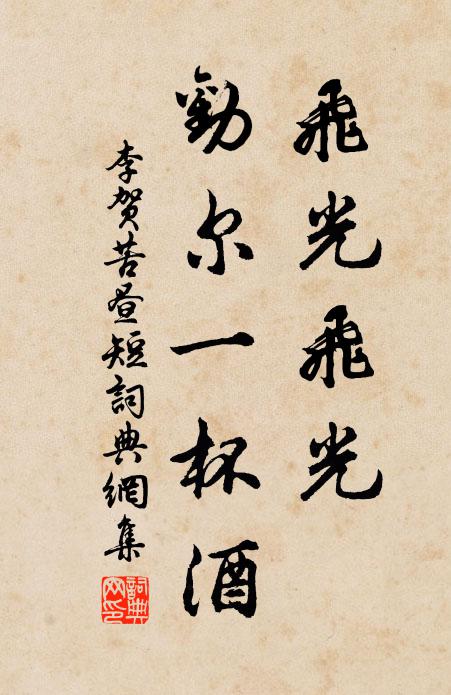 飛光飛光
勸尔一杯酒
李賀苦昼短詞典網集
詞典网印